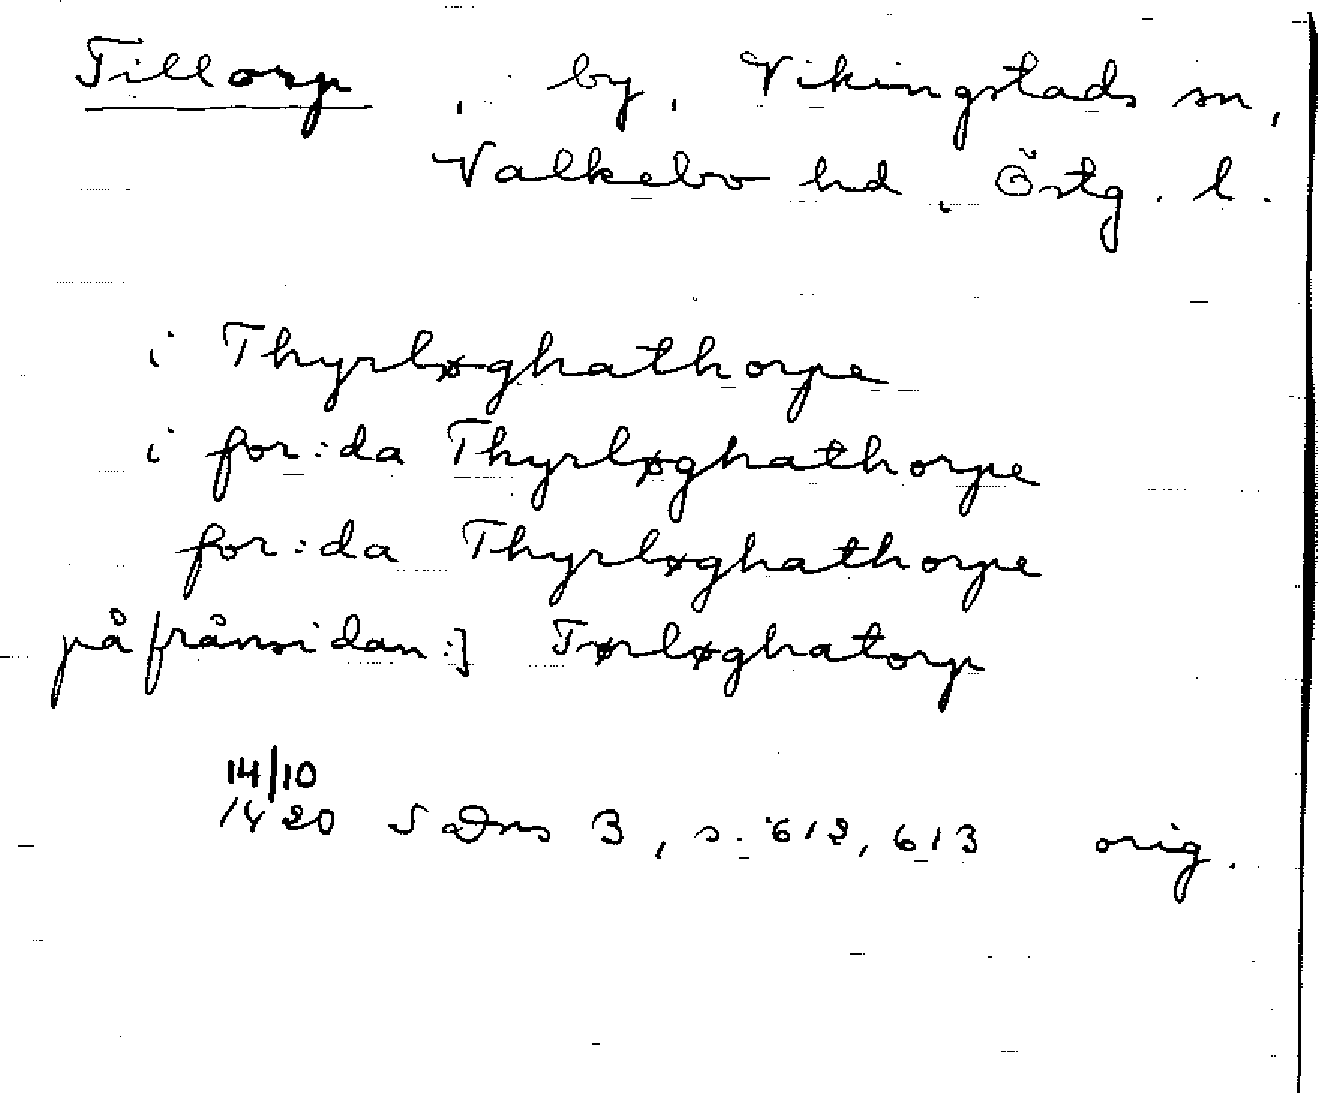 Tillorp, by, Vikingstads sn,
Valkebo hd, Östg. l.
i Thyrløghathorpe
i for:da Thyrløghathorpe
for:da Thyrløghathorpe
på frånsidan:] Tørløghatorp
14/10
1420 SDns 3, s. 612, 613 orig.